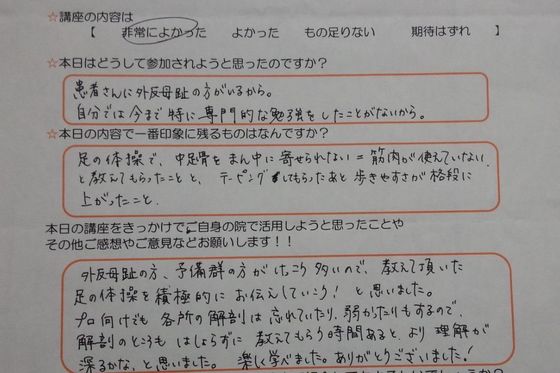 ☆講座の内容は
【 非常によかった よかった もの足りない 期待はずれ 】
☆本日はどうして参加されようと思ったのですか？
患者さんに外反母趾の方がいるから。
自分では今まで特に専門的な勉強をしたことがないから。
☆本日の内容で一番印象に残るものはなんですか？
足の体操で、中足骨をまん中に寄せられない＝筋肉が使えていない
と教えてもらったことと、テーピングしてもらったあと歩きやすさが格段に
上がったこと.
本日の講座をきっかけでご自身の院で活用しようと思ったことや
その他ご感想やご意見などお願いします！！
外反母趾の方、予備群の方がけっこう多いので、教えて頂いた
足の体操を積極的にお伝えしていこう！と思いました。
プロ向けでも各所の解剖は忘れていたり、弱かったりもするので、
解剖のところもはしょらずに教えてもらう時間あると、より理解が
深るかな、と思いました。楽しく学べました。ありがとうございました！